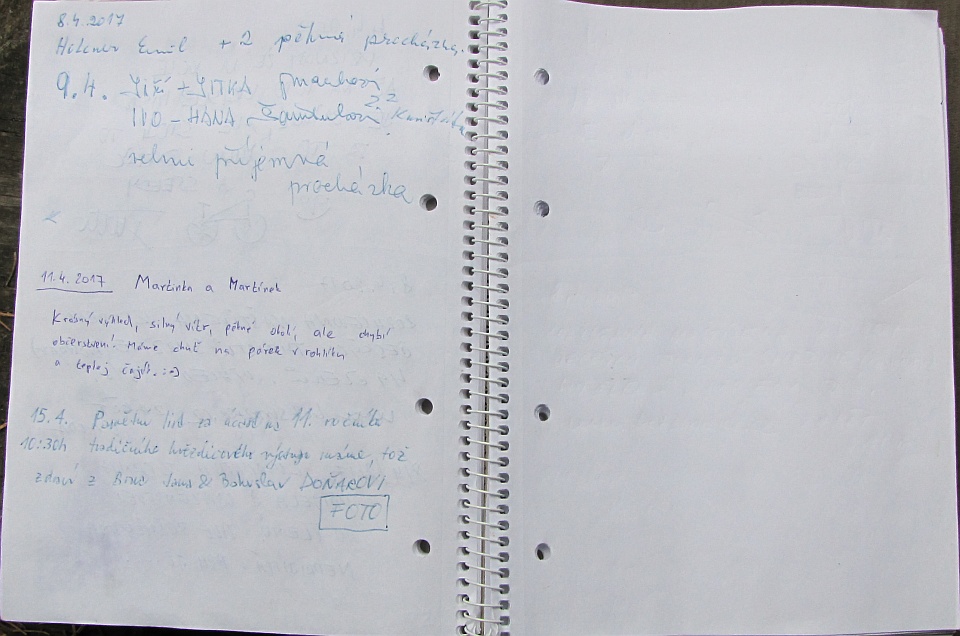 8.4.2017
Emil + 2 pěkná procházka.
9.4. JIŘÍ + JITKA
IVO - HANA
velmi příjemná
procházka
11.4.2017 Martinka a Martínek
Krásný výhled, silný vítr, pěkné okolí, ale chybí
občerstvení. Máme chuť na párek v rohlíku
a teplej čajík. :-)
15.4. Pamětní list za účast na 11. ročníku
10:30h tradičního výstupu máme, tož
zdraví z Brna Jana & Bohuslav DOŇAROVI
FOTO